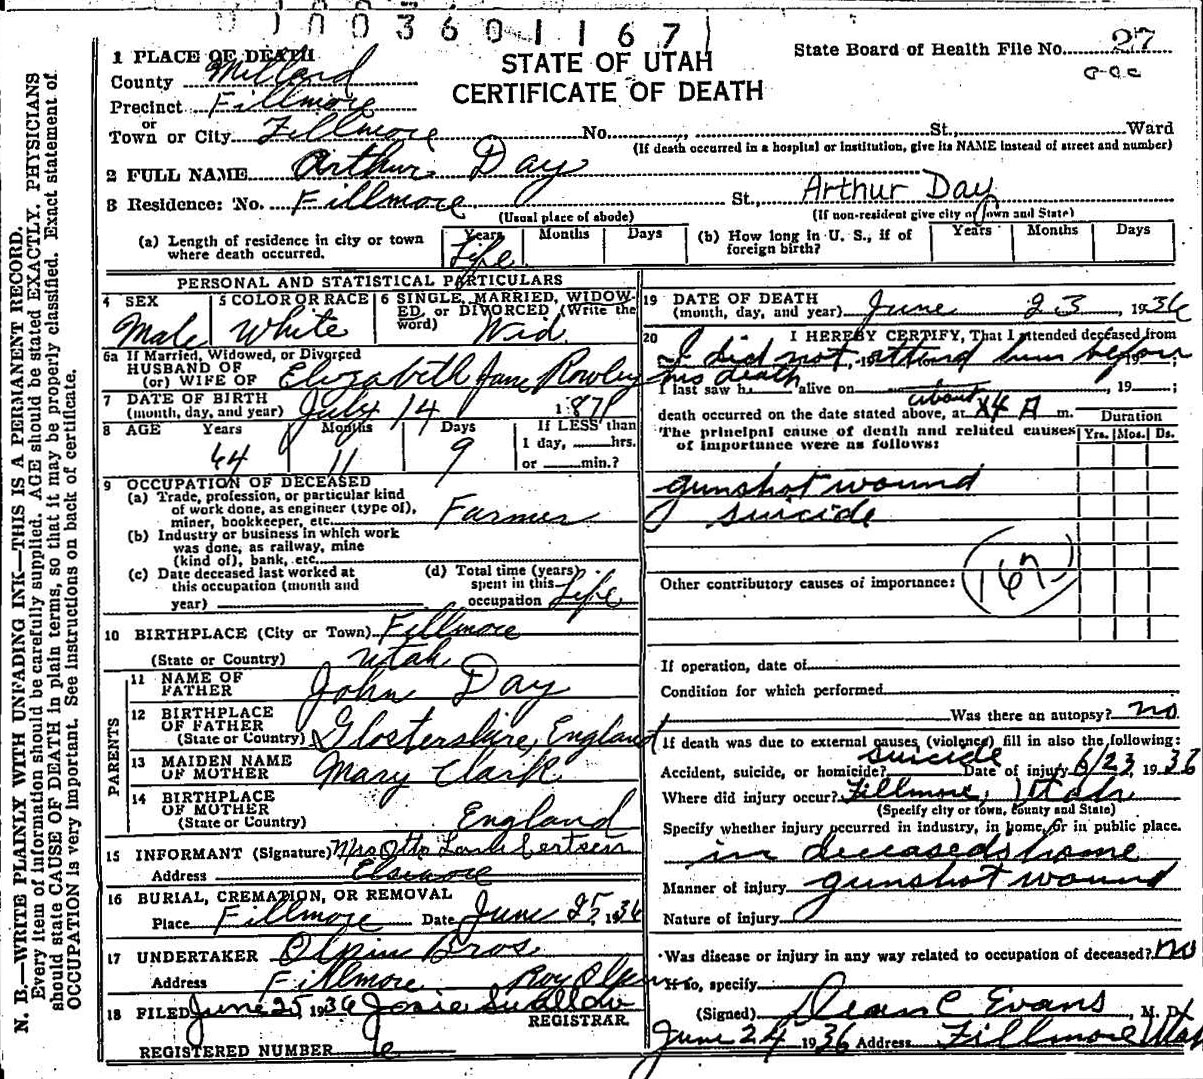 1003601167
1 PLACE OF DEATH
County Millard
Precinct Fillmore
or
Town or City Fillmore No. St., Ward
(If death occurred in a hospital or institution, give its NAME instead of street and number)
STATE OF UTAH
CERTIFICATE OF DEATH
State Board of Health File No. 27
2 FULL NAME Arthur Day
3 Residence: No. Fillmore St., Arthur Day
(Usual place of abode) (If non-resident give city or town and State)
(a) Length of residence in city or town where death occurred. Years Life Months Days
(b) How long in U. S., if of foreign birth? Years Months Days
PERSONAL AND STATISTICAL PARTICULARS
4 SEX Male
5 COLOR OR RACE White
6 SINGLE, MARRIED, WIDOW-
ED, or DIVORCED (Write the
word) Wid.
6a If Married, Widowed, or Divorced
HUSBAND OF
(or) WIFE OF Elizabeth Jane Rowley
7 DATE OF BIRTH
(month, day, and year) July 14 1871
8 AGE Years 64 Months 11 Days 9
If LESS than
1 day, hrs.
or min.?
9 OCCUPATION OF DECEASED
(a) Trade, profession, or particular kind
of work done, as engineer (type of),
miner, bookkeeper, etc. Farmer
(b) Industry or business in which work
was done, as railway, mine
(kind of), bank, etc.
(c) Date deceased last worked at
this occupation (month and
year)
(d) Total time (years)
spent in this
occupation Life
10 BIRTHPLACE (City or Town) Fillmore
(State or Country) Utah
PARENTS
11 NAME OF
FATHER John Day
12 BIRTHPLACE
OF FATHER
(State or Country) Glostershire, England
13 MAIDEN NAME
OF MOTHER Mary Clark
14 BIRTHPLACE
OF MOTHER
(State or Country) England
15 INFORMANT (Signature) Mrs Otto
Address Elsinore
16 BURIAL, CREMATION, OR REMOVAL
Place Fillmore Date June 25 1936
17 UNDERTAKER Olpin Bros.
Address Fillmore Roy Olpin
18 FILED June 25 1936 Josie Swallow
REGISTRAR
REGISTERED NUMBER 6
19 DATE OF DEATH
(month, day, and year) June 23, 1936
20 I HEREBY CERTIFY, That I attended deceased from
I did not attend him before , 19
his death
I last saw h alive on , 19 ;
about
death occurred on the date stated above, at 4 A m.
The principal cause of death and related causes
of importance were as follows:
Duration
Yrs. Mos. Ds.
gunshot wound
suicide
Other contributory causes of importance: 167
If operation, date of
Condition for which performed
Was there an autopsy? no
If death was due to external causes (violence) fill in also the following:
Accident, suicide, or homicide? suicide Date of injury 6/23, 1936
Where did injury occur? Fillmore, Utah
(Specify city or town, county and State)
Specify whether injury occurred in industry, in home, or in public place.
in deceaseds home
Manner of injury gunshot wound
Nature of injury
Was disease or injury in any way related to occupation of deceased? no
If so, specify
(Signed) Dean C Evans, M. D.
June 24 1936 Address Fillmore Utah
N. B.—WRITE PLAINLY WITH UNFADING INK—THIS IS A PERMANENT RECORD.
Every item of information should be carefully supplied. AGE should be stated EXACTLY. PHYSICIANS
should state CAUSE OF DEATH in plain terms, so that it may be properly classified. Exact statement of
OCCUPATION is very important. See instructions on back of certificate.